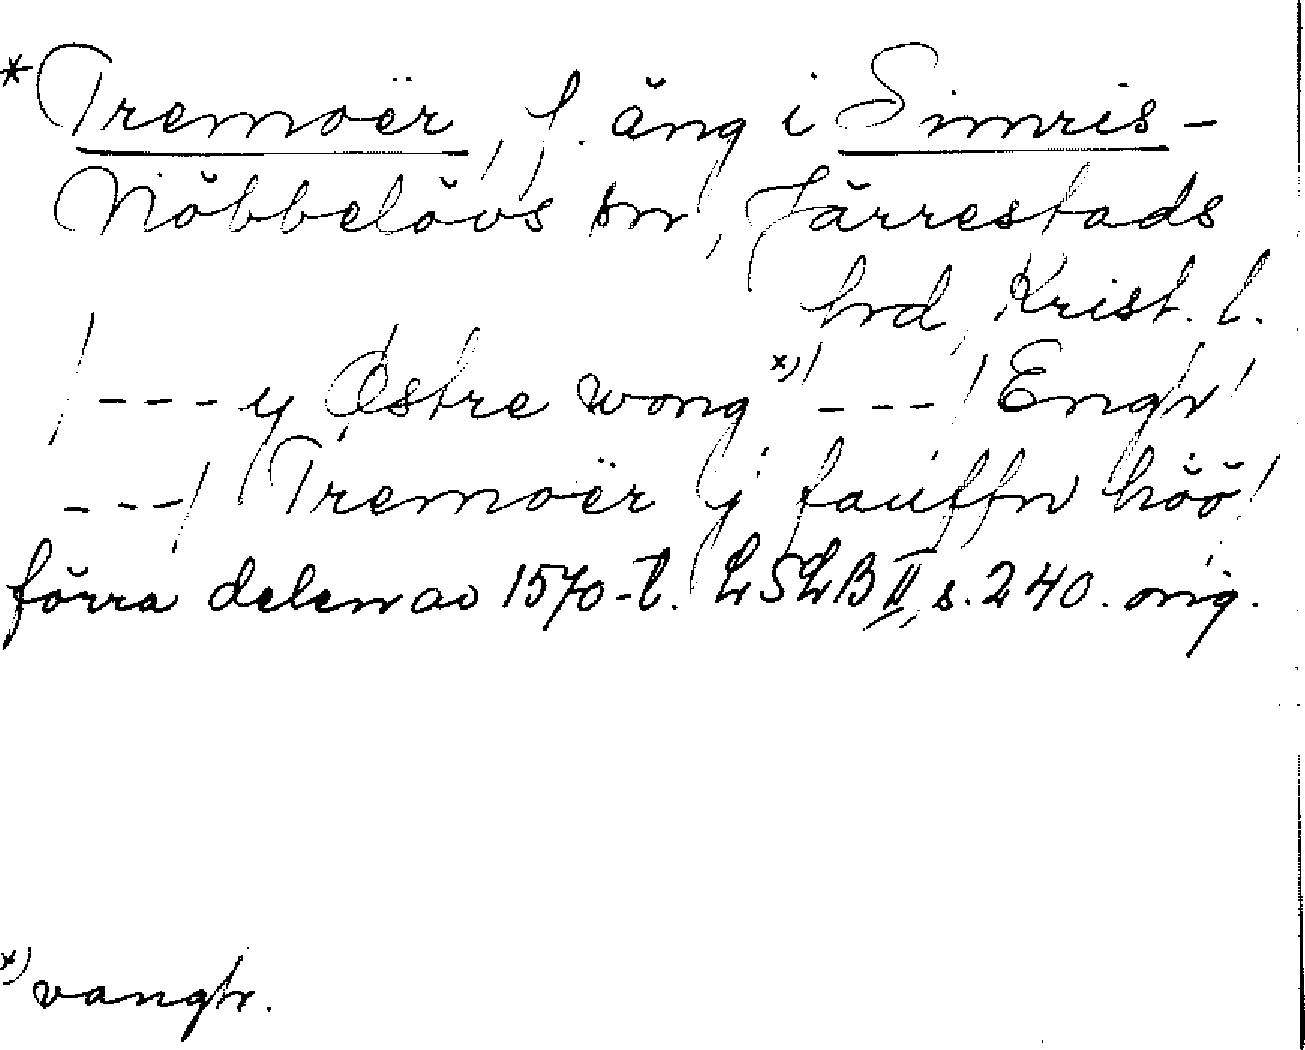 *Tremoër, f. äng i Simris-
Nöbbelövs sn, Järrestads
hrd, Krist. l.
/---y Østre wong x)/ ---/ Engh/
---/ Tremoër ij fauffn höö/
förra delen av 1570-t. LSLB II, s. 240. orig.
x) vangh.